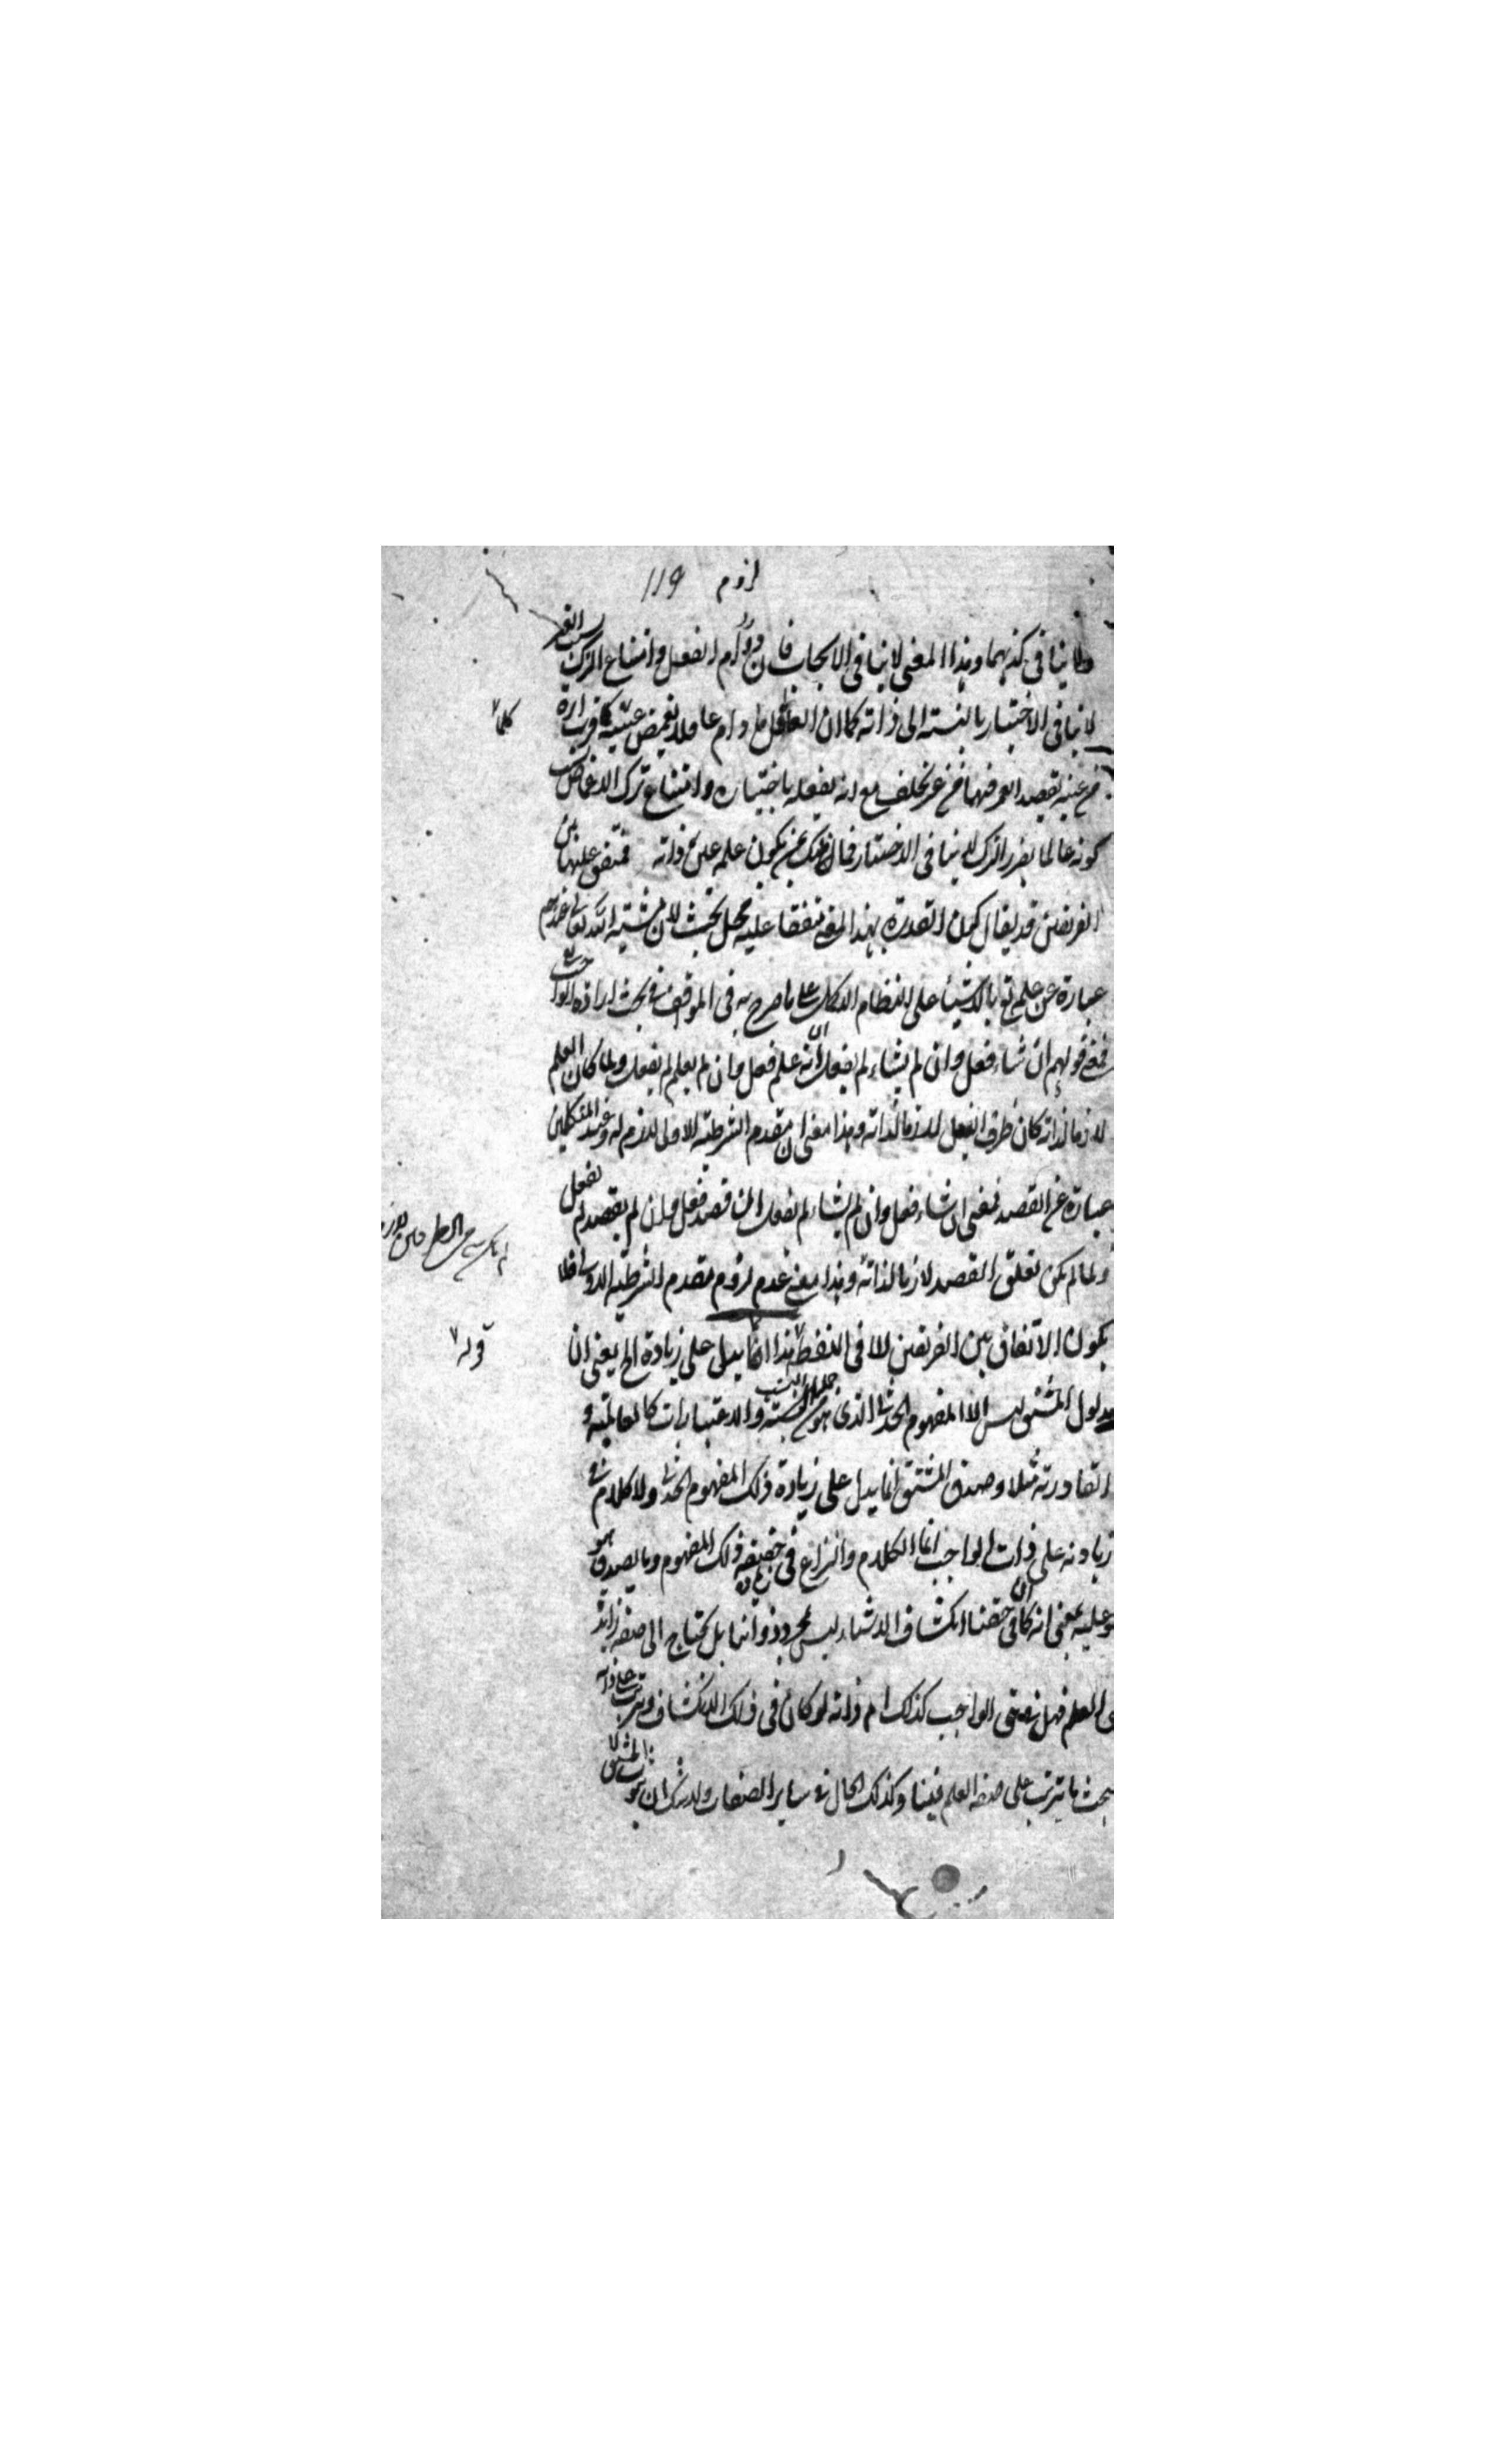 لزوم 119
ولا ينافى كذبهما وهذا المعنى لا ينافى الايجاب فان دوام الفعل وامتناع الترك بسبب الغير
لا ينافى الاختيار بالنسبة الى ذاته كما ان العاقل ما دام عاقلا يغمض عينيه كلما قرب ابرة
كلما
من عينيه بقصد الغمز فيها من غير تخلف مع انه يفعله باختياره وامتناع ترك الاغماض بسبب
كونه عالما بضرر الترك لا ينافى الاختيار فما ظنك بمن يكون علمه عين ذاته متفق عليها بين
الفريقين قد يقال كون القدرة بهذا المعنى متفقا عليه محل بحث لان مشية الله تعالى عندهم
عبارة عن علمه تعالى بالاشياء على النظام الاكمل على ما صرح به فى المواقف فى بحث ارادة الواجب
فمعنى قولهم ان شاء فعل وان لم يشاء لم يفعل انه ان علم فعل وان لم يعلم لم يفعل ولما كان العلم
لازما لذاته كان طرف الفعل لازما لذاته وهذا معنى ان مقدم الشرطية الاولى لازم له وعند المتكلمين
عبارة عن القصد فمعنى ان شاء فعل وان لم يشاء لم يفعل ان قصد فعل وان لم يقصد لم يفعل
ولما لم يكن تعلق القصد لازما لذاته وهذا معنى عدم لزوم مقدم الشرطية الاولى فلا
يكون الاتفاق بين الفريقين الا فى اللفظ هذا انما يدل على زيادة الخ يعنى ان
قوله
مدلول المشتق ليس الا المفهوم الحدثى الذى هو من قبيل النسب والاعتبارات كالعالمية و
القادرية مثلا وصدق المشتق انما يدل على زيادة ذلك المفهوم الحدثى ولا كلام فى
زيادته على ذات الواجب انما الكلام والنزاع فى حقيقة ذلك المفهوم وما يصدق هو
هو عليه بمعنى انه كما ان فى حقنا انكشاف الاشياء ليس بمجرد ذواتنا بل يحتاج الى صفة زائدة
هى العلم فهل فى حق الواجب كذلك ام ذاته تعالى كاف فى ذلك الانكشاف ويترتب على ذاته
بحت ما يترتب على صفة العلم فينا وكذلك الحال فى سائر الصفات ولا شك ان ثبوت المشتق لا